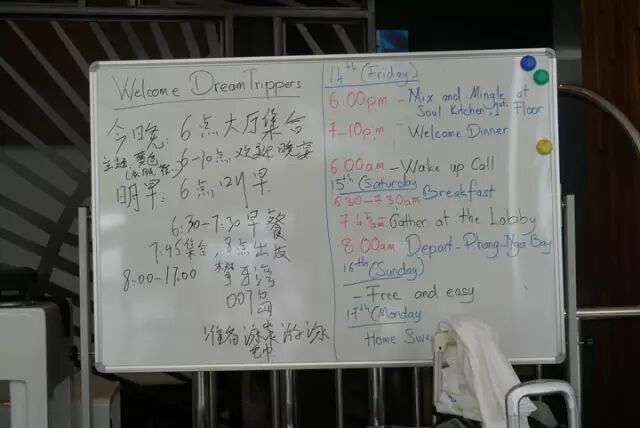 Welcome DreamTrippers
今日晚: 6点大厅集合
6-10点 欢迎晚宴
明早: 6点叫早
6:30-7:30早餐
7:45集合, 8点出发
8:00-17:00 攀牙湾
007岛
准备泳装 游泳
14th (Friday)
6.00pm - Mix and Mingle at
Soul Kitchen, 1st Floor
7-10pm - Welcome Dinner
6.00am - Wake up Call
15th (Saturday)
6.30-7.30am Breakfast
7.45am Gather at the Lobby
8.00am Depart-Phang-Nga Bay
16th (Sunday)
- Free and easy
17th (Monday)
Home